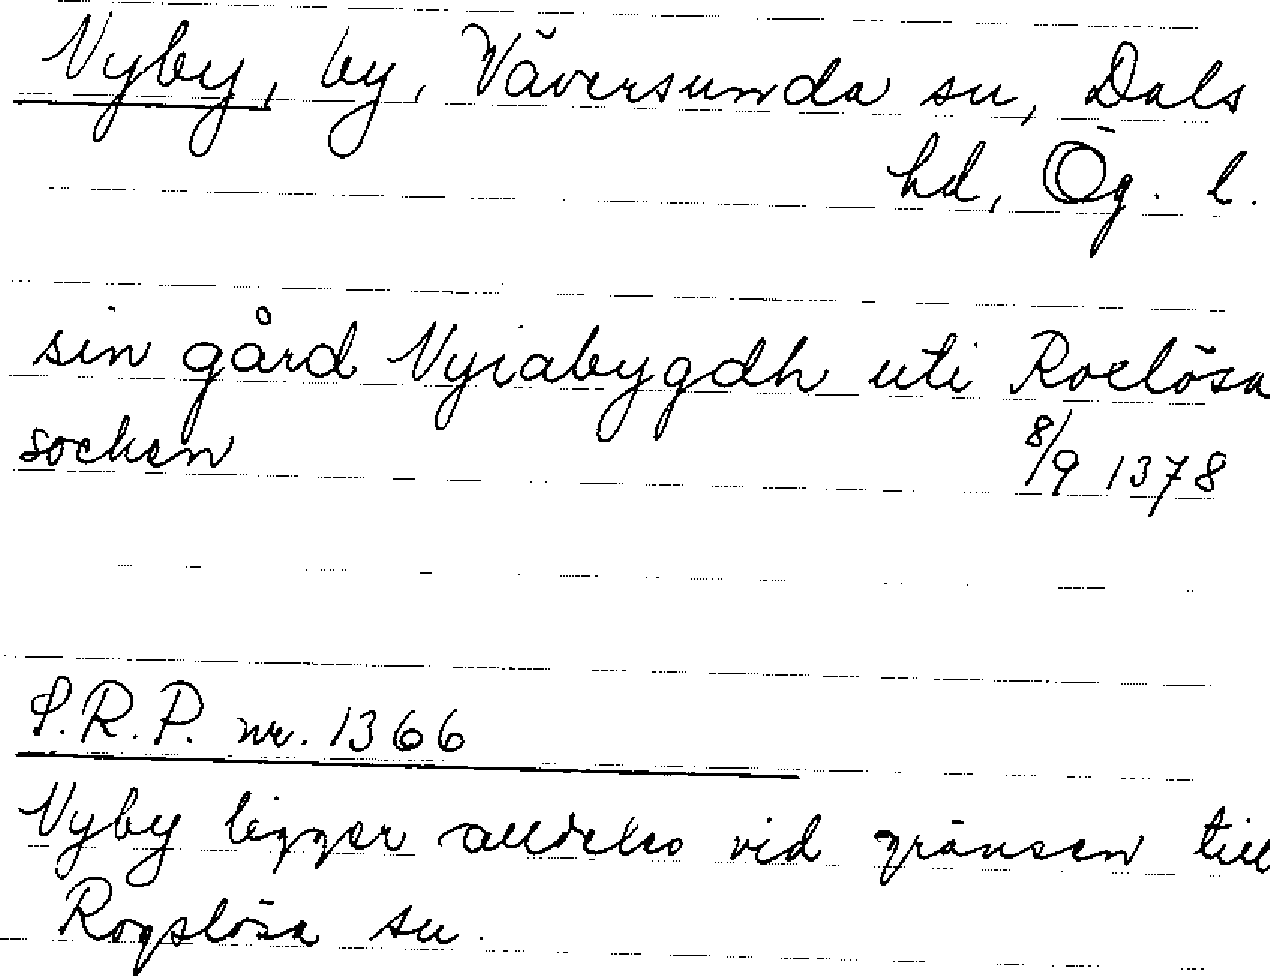 Nyby, by, Väversunda sn, Dals
hd, Ög. l.
sin gård Nyiabygdh uti Roelösa
socken 8/9 1378
S.R.P. nr. 1366
Nyby ligger alldeles vid gränsen till
Rogslösa sn.